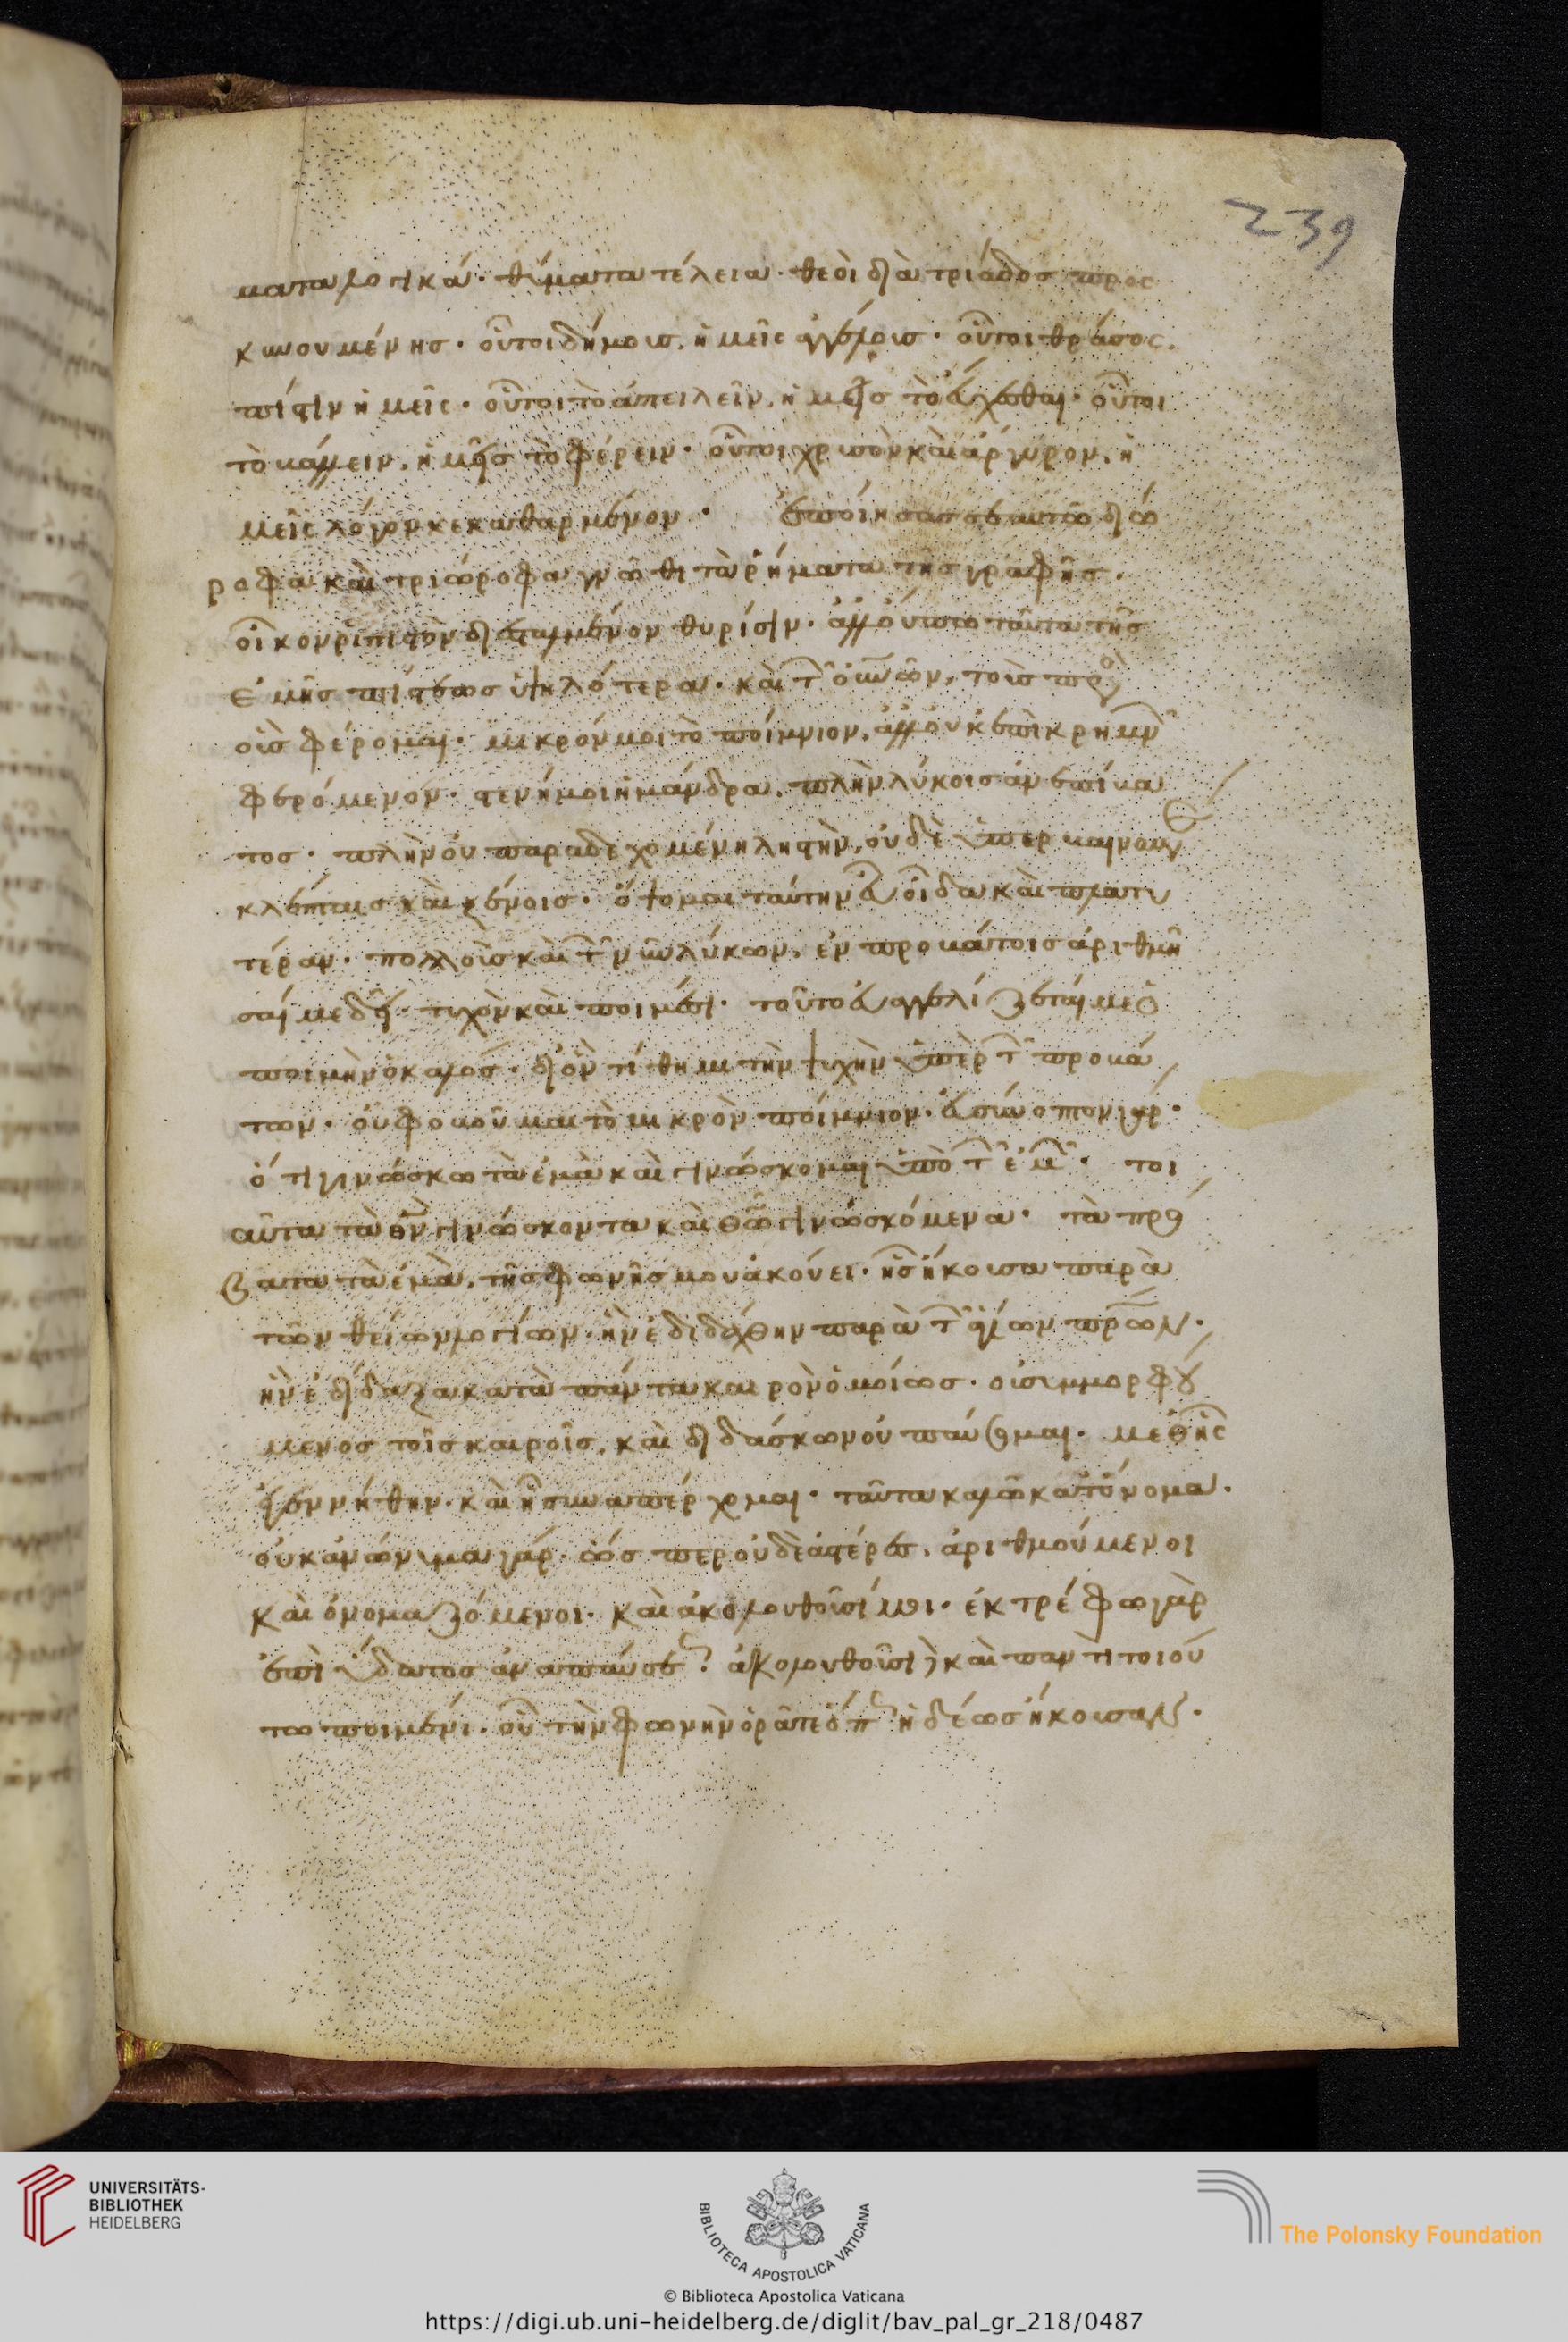 ματα λογικά· θύματα τέλεια· θεοὶ διὰ τριάδος προσ
κυνουμένης· οὗτοι δήμους, ἡμεῖς ἀγγέλους· οὗτοι θράσος,
πίστιν ἡμεῖς· οὗτοι τὸ ἀπειλεῖν, ἡμεῖς τὸ εὔχεσθαι· οὗτοι
τὸ βάλλειν, ἡμεῖς τὸ φέρειν· οὗτοι χρυσὸν καὶ ἄργυρον, ἡ
μεῖς λόγον κεκαθαρμένον· ἐποίησας σεαυτῶ διώ
ροφα καὶ τριώροφα γνῶθι τὰ ῥήματα τῆς γραφῆς·
οἶκον ῥιπιστὸν διεσταλμένον θυρίσιν· ἀλλ' οὔπω ταῦτα τῆς
ἐμῆς πίστεως ὑψηλότερα· καὶ τῶν οὐνῶν, πρὸς
οὓς φέρομαι· μικρόν μοι τὸ ποίμνιον, ἀλλ' οὐκ ἐπὶ κρημνῶν
φερόμενον· στενή μοι ἡ μάνδρα, πλὴν λύκοις ἀνεπίβα
τος· πλὴν οὐ παραδεχομένη ληστὴν, οὐδὲ ὑπερβαινομένη
κλέπταις καὶ ξένοις· ὄψομαι ταύτην εὖ οἶδα καὶ πλατυ
τέραν· πολλοὺς καὶ τῶν νῦν λύκων, ἐν προβάτοις ἀριθμῆ
σαί με δεῖ· τυχὸν καὶ ποιμέσι· τοῦτο εὐαγγελίζεταί με ὁ
ποιμὴν ὁ καλός· δι' ὃν τίθημι τὴν ψυχὴν ὑπὲρ τῶν προβά
των· οὐ φοβοῦμαι τὸ μικρὸν ποίμνιον· εὐσύνοπτον γάρ·
ὅτι γινώσκω τὰ ἐμὰ καὶ γινώσκομαι ὑπὸ τῶν ἐμῶν· τοι
αῦτα τὰ θν γινώσκοντα καὶ θῶ γινωσκόμενα· τὰ πρό
βατα τὰ ἐμὰ, τῆς φωνῆς μου ἀκούει· ἧς ἤκουσα παρὰ
τῶν θείων λογίων· ἣν ἐδιδάχθην παρὰ τῶν ἁγίων πρων·
ἣν ἐδίδαξα κατὰ πάντα καιρὸν ὁμοίως· οὐ συμμορφού
μενος τοῖς καιροῖς, καὶ διδάσκων οὐ παύσομαι· μεθ' ἧς
ἐγεννήθην· καὶ ἧ συναπέρχομαι· ταῦτα καλῶ κατ' ὄνομα·
οὐκ ἀνώνυμα γάρ· ὥσπερ οὐδὲ ἀστέρες, ἀριθμούμενοι
καὶ ὀνομαζόμενοι· καὶ ἀκολουθοῦσί μοι· ἐκτρέφω γὰρ
ἐπὶ ὕδατος ἀναπαύσεως· ἀκολουθοῦσι δὲ καὶ παντὶ τοιού
τω ποιμένι· οὗ τὴν φωνὴν ὁρᾶτε ὅπως ἡδέως ἤκουσαν·
239
UNIVERSITÄTS-
BIBLIOTHEK
HEIDELBERG
BIBLIOTECA APOSTOLICA VATICANA
The Polonsky Foundation
© Biblioteca Apostolica Vaticana
https://digi.ub.uni-heidelberg.de/diglit/bav_pal_gr_218/0487